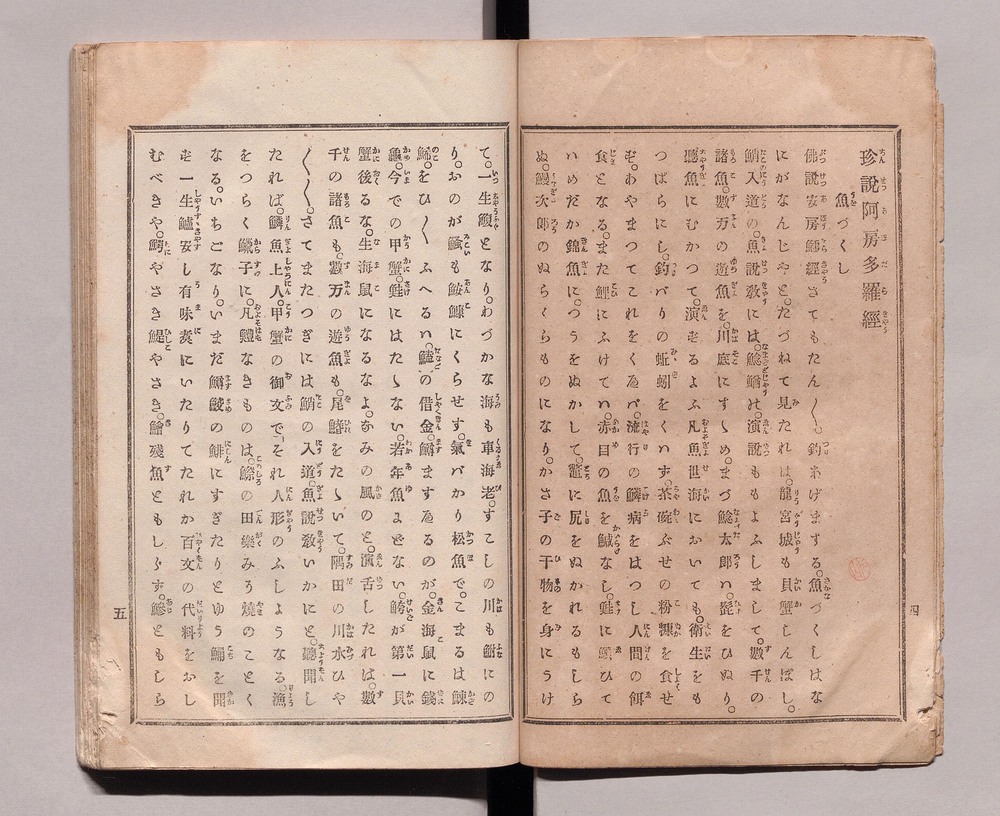 珍説阿房多羅經
魚づくし
佛説安房鱈經さてもたん〱釣あげまする。魚づくしはな
にがなんじやと。たづねて見たれは。龍宮城も貝蟹しんぼし。
鮹入道の。魚説教には。鯰鰌の。演説ももよふしまして。數千の
諸魚。數万の遊魚を。川底にすゝめ。まづ鯰太郎ハ。髭をひぬり。
聽魚にむかつて。演るよふ凡魚世海においても。衛生をも
つばらにし。釣バリの蚯蚓をくハず。茶碗ぶせの粉糠を食せ
ぞ。あやまつてこれをくゑバ。流行の鱗病をはつし人間の餌
食となる。また鯉にふけてハ。赤目の魚を鰔なし。鮭に ひて
ハめだか錦魚に。つうをぬかして。 に尻をぬかれるもしら
ぬ。鰻次郎のぬらくらものになり。かさ子の干物を身にうけ
四
て。一生鰒となり。わづかな海も車海老。すこしの川も鮒にの
り。おのが も鮟鱇にくらせす。氣バかり松魚で。こまるは鰊
鯑。をひ〱ふへるハ。 の借金。鱒ますゐるのが。金海鼠に錢
龜。今での甲蟹。鮭にはたゝない。若年魚まどない。 が第一貝
蟹後るな。生海鼠になるなよ。なみの風のと。演舌したれば。數
千の諸魚も。數万の遊魚も。尾鰭をたゝいて。隅田の川水ひや
〱〱。さてまたつぎには鮹の入道。魚説教いかにと。聽聞し
たれば。鱗魚上人。甲蟹の御文で「それ人形のふしょうなる。漁
をつらく 子に。凡鱧なきものは。鰶の田樂みう燒のことく
なる。いちごなり。いまだ鱒鮫の鯡にすぎたりとゆう を聞
ず一生鱸安し有味煮にいたりてたれか百文の代料をおし
むべきや。鰐やさき鯷やさき。鱠殘魚ともしらす。鰺ともしら
五